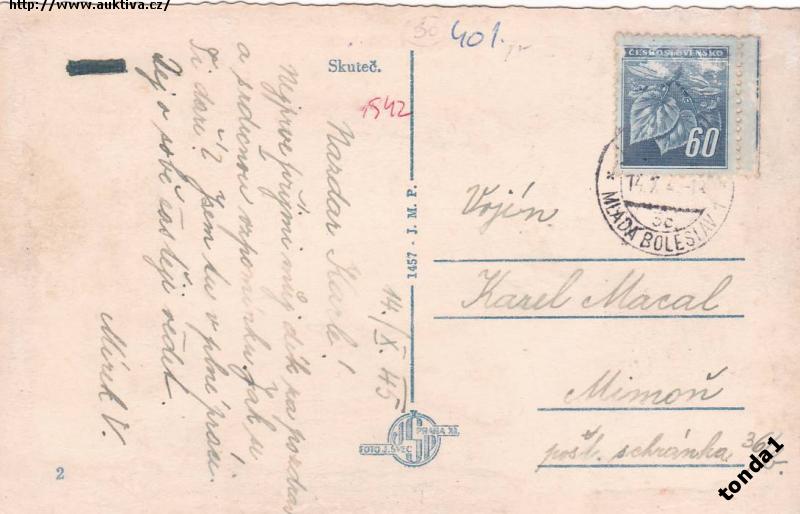 http://www.auktiva.cz/
Skuteč.
30
401.
1542
14./X. 45
Nazdar Karle!
Nejprve přijmi můj dík za pozdrav
a srdečnou vzpomínku. Jak se
Ti daří? Jsem tu v plné práci.
Dej o sobě častěji vědět.
Mirek V.
1457 - J. M. P.
PRAHA XI.
FOTO J. ŠVEC
2
ČESKOSLOVENSKO
60
14.X.4
MLADÁ BOLESLAV 1
3c
Vojín
Karel Macal
Mimoň
pošt. schránka 36
tonda1